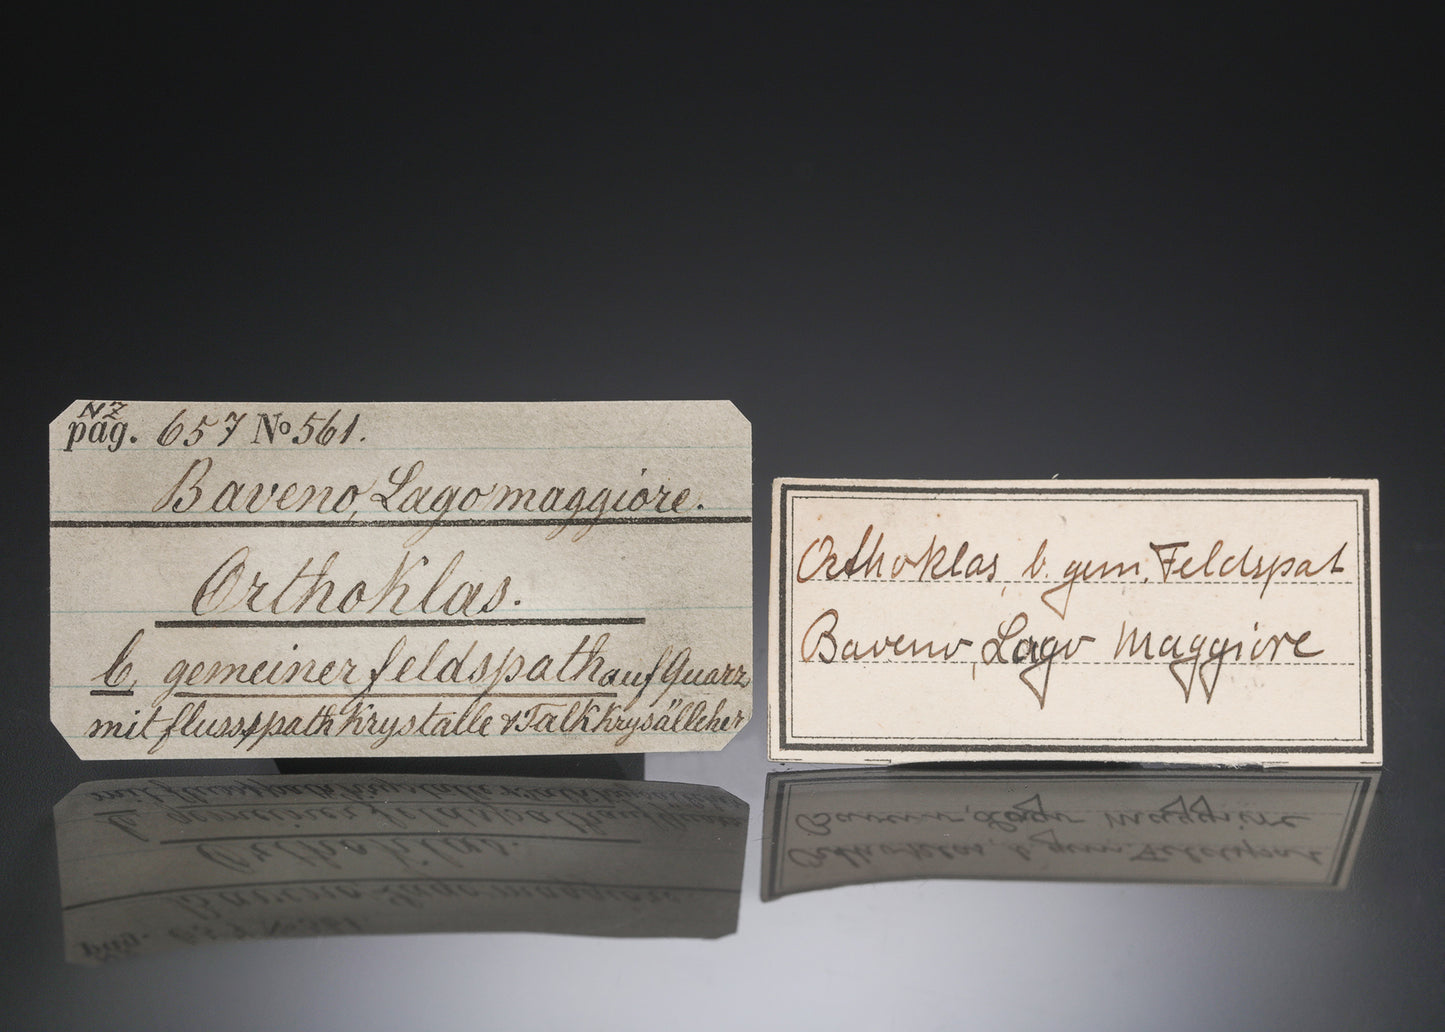 NZ
pag. 657 No 561.
Baveno, Lago maggiore.
Orthoklas.
b, gemeiner feldspath auf Quarz
mit flussspath Krystalle & Talk Krysällcher
Orthoklas, b. gem. Feldspat
Baveno, Lago Maggiore